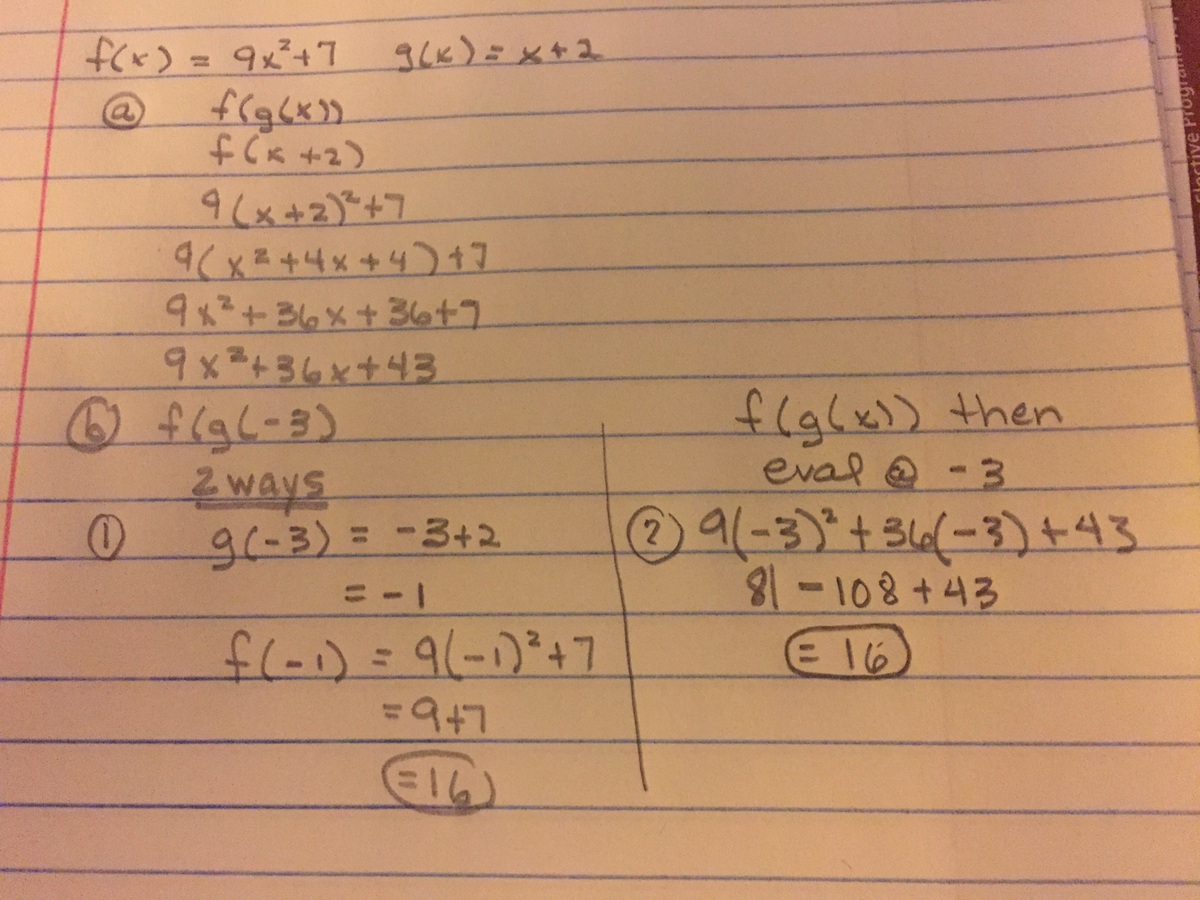 f(x) = 9x²+7 g(x) = x+2
ⓐ f(g(x))
f(x+2)
9(x+2)²+7
9(x²+4x+4)+7
9x²+36x+36+7
9x²+36x+43
ⓑ f(g(-3)
2 ways
① g(-3) = -3+2
= -1
f(-1) = 9(-1)²+7
=9+7
=16
f(g(x)) then
eval @ -3
② 9(-3)²+36(-3)+43
81 -108+43
= 16